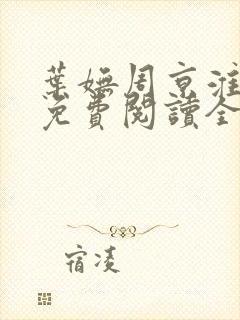 葉嫵周京淮
免費閱讀全
宿凌